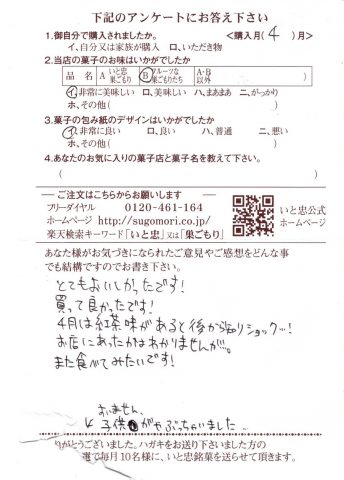 下記のアンケートにお答え下さい
1.御自分で購入されましたか。 <購入月( 4 )月>
イ、自分又は家族が購入 ロ、いただき物
2.当店の菓子のお味はいかがでしたか
品名 A いと忠巣ごもり B フルーツな巣ごもりたち A・B以外
イ、非常に美味しい ロ、美味しい ハ、まあまあ ニ、がっかり
ホ、その他( )
3.菓子の包み紙のデザインはいかがでしたか
イ、非常に良い ロ、良い ハ、普通 ニ、悪い
ホ、その他( )
4.あなたのお気に入りの菓子店と菓子名を教えて下さい。
( )
ご注文はこちらからお願いします
フリーダイヤル 0120-461-164
ホームページ http://sugomori.co.jp/
楽天検索キーワード「いと忠」又は「巣ごもり」
いと忠公式
ホームページ
あなた様がお気づきになられたご意見やご感想をどんな事
でも結構ですのでお書き下さい。
とてもよいしかったです!
買って良かったです!
4月は紅茶味があると後から知りショック…!
お店にあったかはわかりませんが…。
また食べてみたいです!
すいません、
子供がやぶっちゃいました…
りがとうございました。ハガキをお送り下さいました方の
選で毎月10名様に、いと忠銘菓を送らせて頂きます。